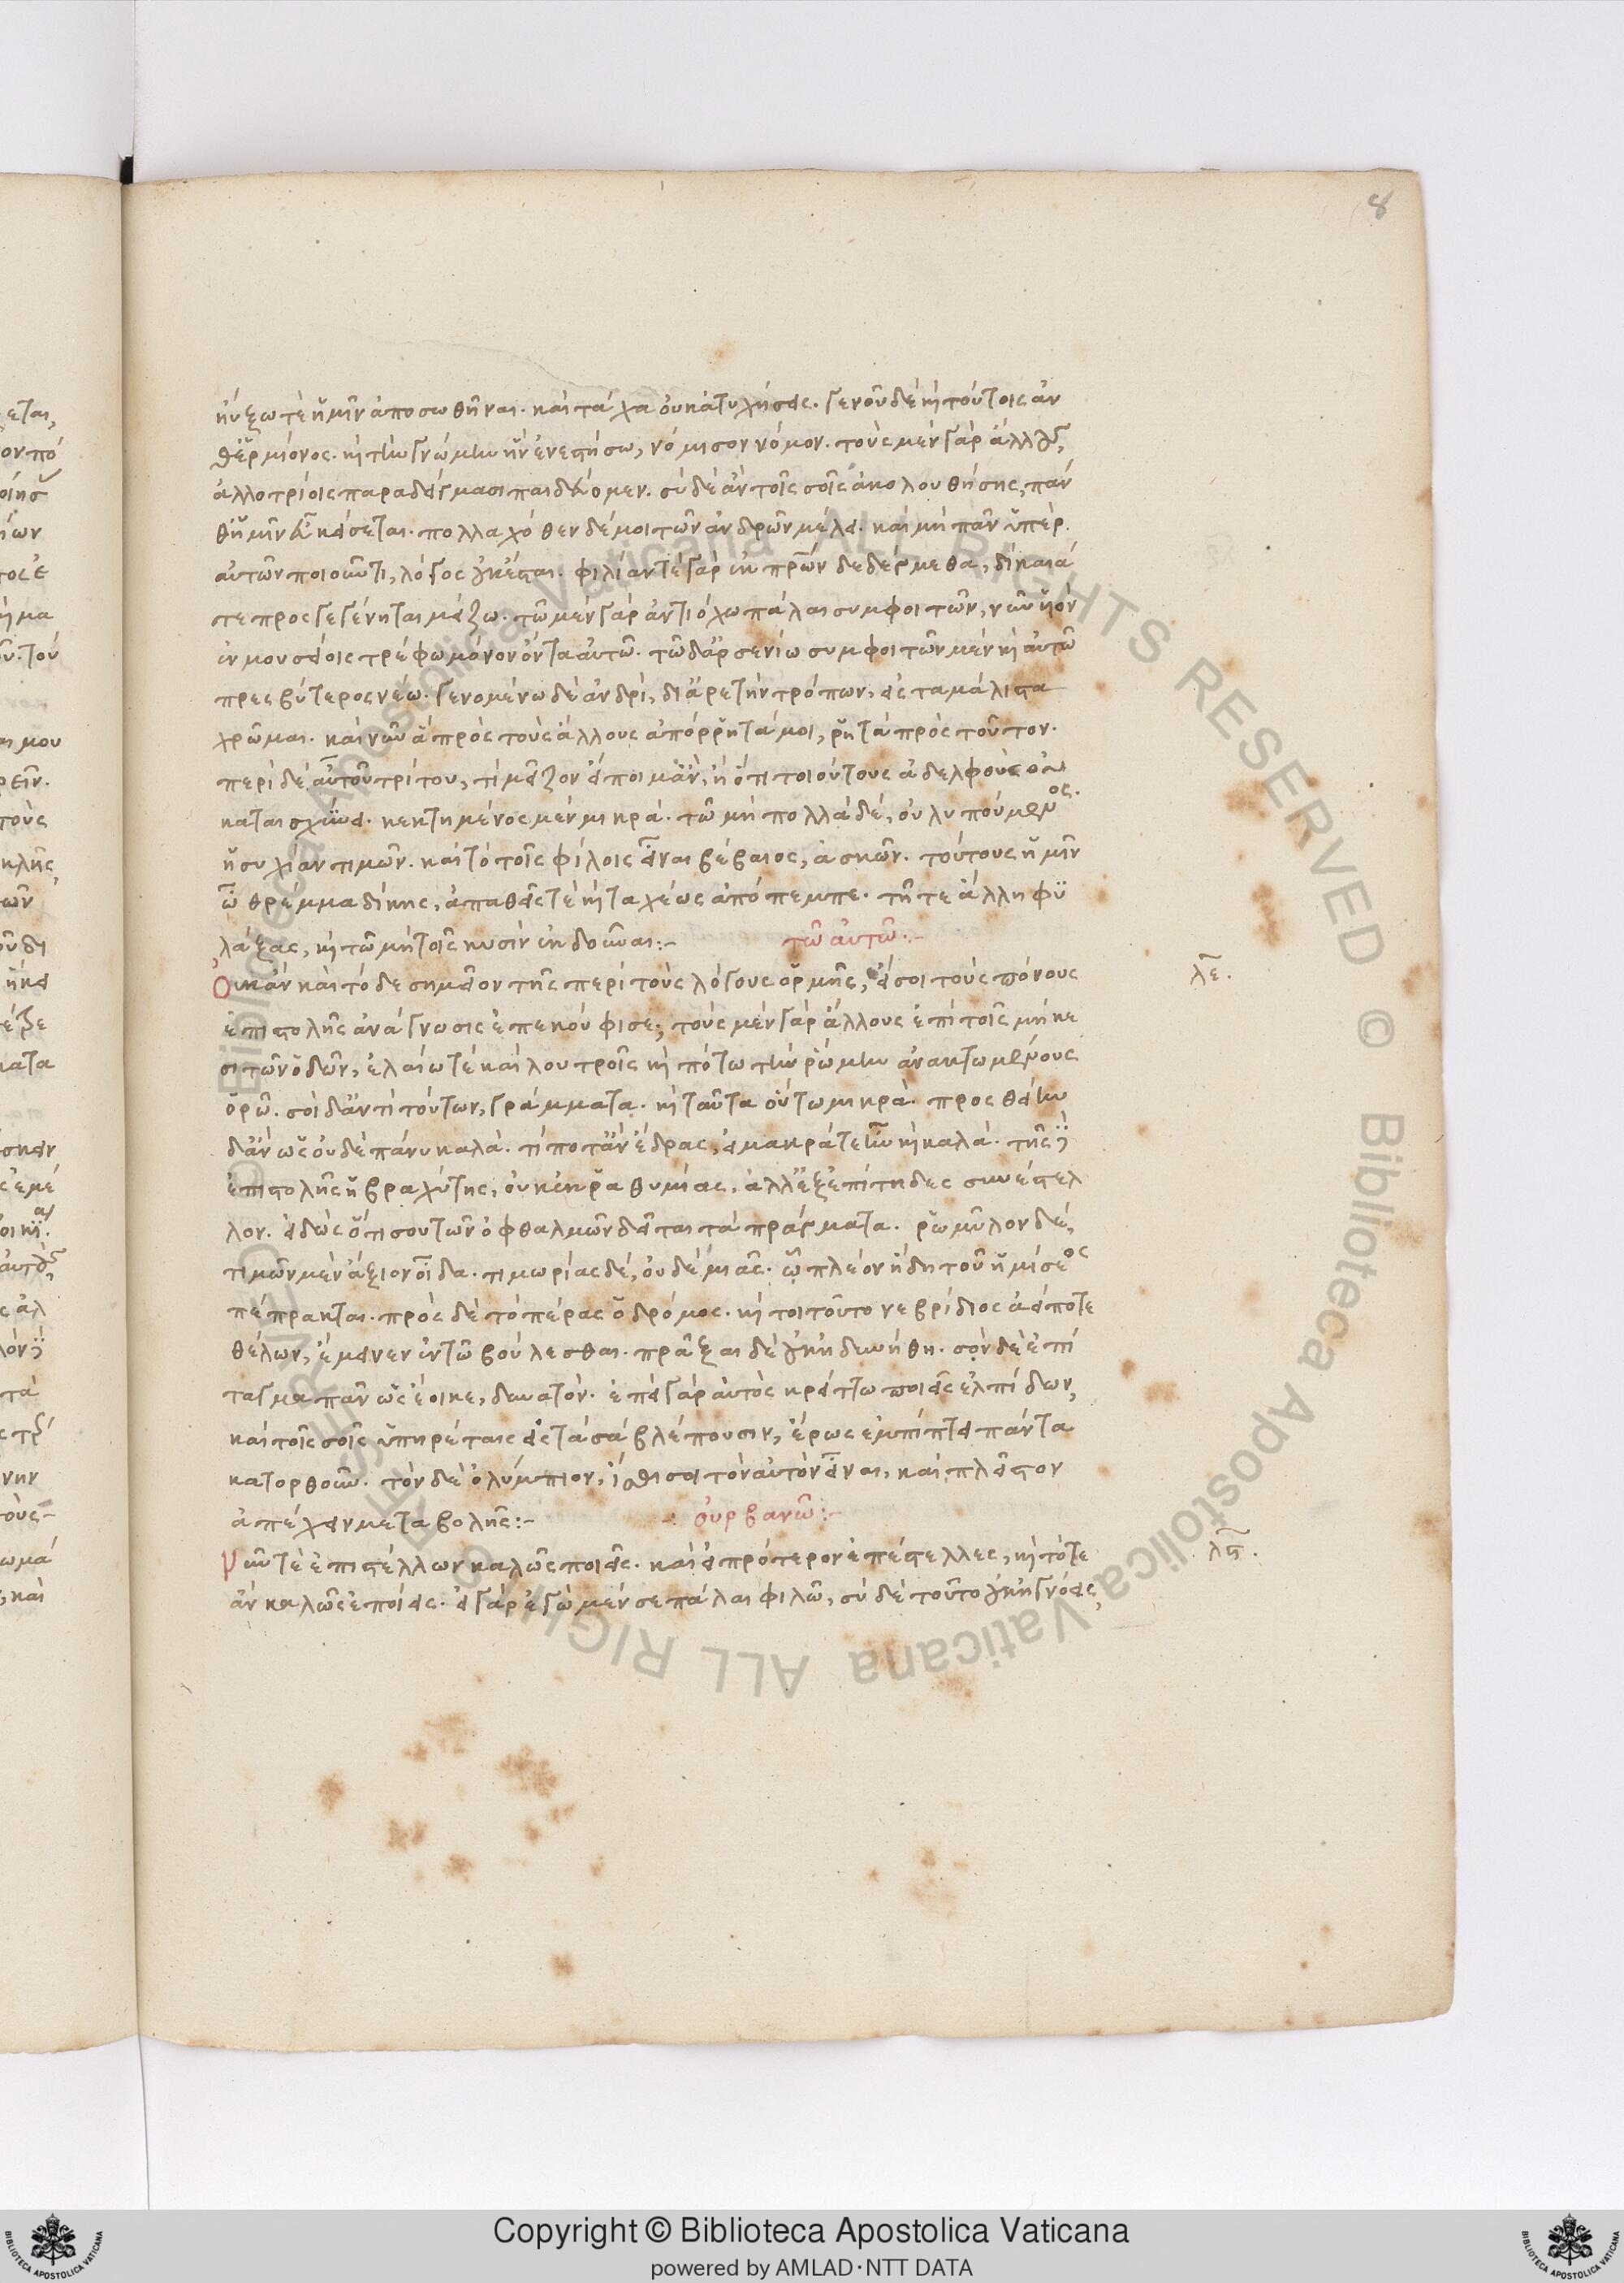 8
ηὐξω τὲ ἡμῖν ἀποσωθῆναι. καὶ τάχα οὐκ ἀτυχήσεις. γενοῦ δὲ κὶ τούτοις ἀν
θ ἑρμίονος. κὶ τὴν γνώμην ἣν ἐνεστήσω, νόμισον νόμον. τοὺς μὲν γὰρ ἄλλους,
ἀλλοτρίοις παραδείγμασι παιδεύομεν. σὺ δὲ ἀν τοῖς σοῖς ἀκολουθήσης, πάν
θ ἡμῖν εὖ κείσεται. πολλαχόθεν δέ μοι τῶν ἀνδρῶν μέλει. καὶ μὴ πᾶν ὑπὲρ
αὐτῶν ποιοῦντι, λόγος οὐκ ἔσται. φιλίαν τὲ γὰρ ἐκ πρῶν δεδέγμεθα, δίκαιά
τε προσγεγένηται μείζω. τῶ μὲν γὰρ ἀντιόχω πάλαι συμφοιτῶν, νῦν υἱὸν
ἐν μουσείοις τρέφω μόνον ὄντα αὐτῶ. τῶ δ ἀρσενίω συμφοιτῶν μὲν κὶ αὐτῶ
πρεσβύτερος νέω. γενομένω δὲ ἀνδρὶ, δι ἀρετὴν τρόπων, εἰς τὰ μάλιστα
χρῶμαι. καὶ νῦν ἃ πρὸς τοὺς ἄλλους ἀπόρρητά μοι, ῥητὰ πρὸς τοῦτον.
περὶ δὲ αὐτοῦ τρίτου, τί μεῖζον εἴποιμ ἂν, ἢ ὅτι τοιούτους ἀδελφοὺς οὐ
καταισχύνει. κεκτημένος μὲν μικρά. τῶ μὴ πολλὰ δέ, οὐ λυπούμενος.
ἡσυχίαν τιμῶν. καὶ τὸ τοῖς φίλοις εἶναι βέβαιος, ἀσκῶν. τούτους ἡμῖν
ὦ θρέμμα δίκης, ἀπαθεῖς τὲ κὶ ταχέως ἀπόπεμπε. τῆ τε ἄλλη φυ
λάξας, κὶ τῶ μὴ τοῖς κυσὶν ἐκδοῦναι:-
τῶ αὐτῶ:-
Οὐκ ἂν καὶ τόδε σημεῖον τῆς περὶ τοὺς λόγους ὁρμῆς, εἴ σοι τοὺς πόνους
λε.
ἐπιστολῆς ἀνάγνωσις ἐπεκούφισε; τοὺς μὲν γὰρ ἄλλους ἐπὶ τοῖς μήκε
σι τῶν ὁδῶν, ἐλαίω τὲ καὶ λουτροῖς κὶ πότω τὴν ῥώμην ἀνακτωμένους
ὁρῶ. σοὶ δ ἀντὶ τούτων, γράμματα. κὶ ταῦτα οὕτω μικρὰ. προσθείην
δ ἂν ὡς οὐδὲ πάνυ καλὰ. τί ποτ ἂν ἔδρας, εἰ μακρά τε ἦν κὶ καλά. τῆς
ἐπιστολῆς ἡ βραχύτης, οὐκ ἐκ ῥαθυμίας, ἀλλ ἐξεπίτηδες συνέστελ
λον. εἰδὼς ὅτι σου τῶν ὀφθαλμῶν δεῖται τὰ πράγματα. ῥωμύλον δέ,
τιμῶν μὲν ἄξιον οἶδα. τιμωρίας δέ, οὐδεμιᾶς. ᾧ πλέον ἤδη τοῦ ἡμίσεος
πέπρακται. πρὸς δὲ τὸ πέρας ὁ δρόμος. κὶ τοι τοῦτο νεβρίδιος ἀείποτε
θέλων, ἔμεινεν ἐν τῶ βούλεσθαι. πρᾶξαι δὲ οὐκ ἠδυνήθη. σὸν δὲ ἐπί
ταγμα πᾶν ὡς ἔοικε, δυνατόν. ἐπεὶ γὰρ αὐτὸς κρείττω ποιεῖς ἐλπίδων,
καὶ τοῖς σοῖς ὑπηρέταις εἰς τὰ σὰ βλέπουσιν, ἔρως ἐμπίπτει πάντα
κατορθοῦν. τὸν δὲ ὀλύμπιον, ἴσθι σοι τὸν αὐτὸν εἶναι, καὶ πλεῖστον
ἀπέχειν μεταβολῆς:-
οὐρβανῶ:-
Νῦν τὲ ἐπιστέλλων καλῶς ποιεῖς. καὶ εἰ πρότερον ἐπέστελλες, κὶ τότε
λϛ.
ἂν καλῶς ἐποίεις. εἰ γὰρ ἐγὼ μέν σε πάλαι φιλῶ, σὺ δὲ τοῦτο οὐκ ἠγνόεις,
Copyright © Biblioteca Apostolica Vaticana
powered by AMLAD·NTT DATA